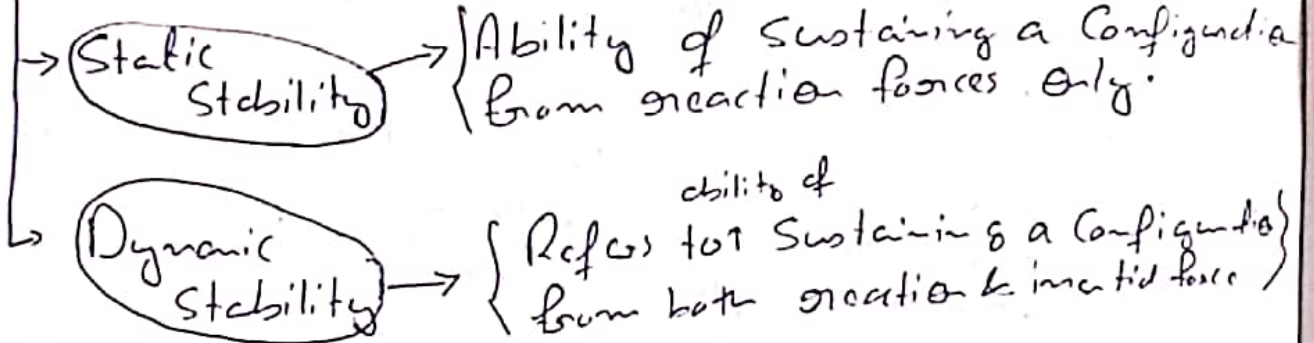 Static Stability
Ability of Sustaining a Configuratio
from reaction forces only.
Dynamic Stability
ability of
Refers to↑ Sustaining a Configuratio
from both reaction & inertial force